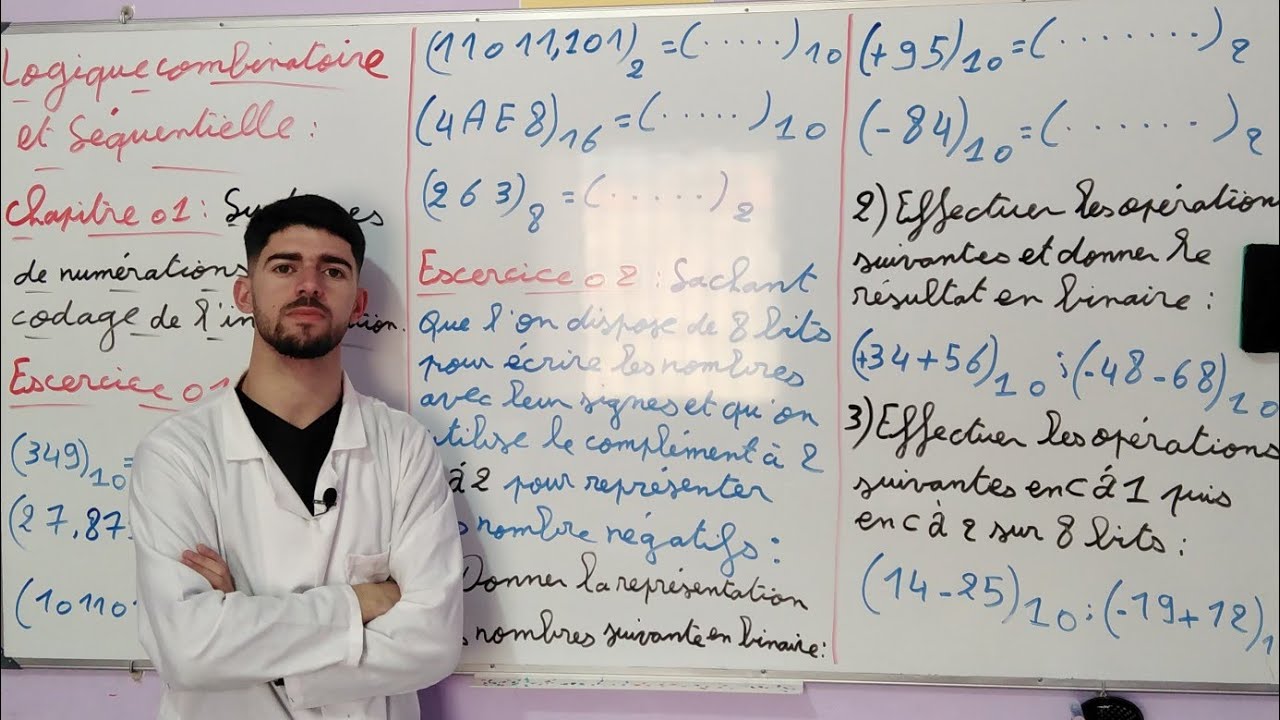 Logique combinatoire
et Séquentielle :
Chapitre 01 :
de numérations
codage de l'in
Escercice 01
(349)10=
(27,87
(10110
(11011,101)2 =(.....)10
(4AE8)16 =(.....)10
(263)8 =(......)2
Escercice 02 : Sachant
que l'on dispose de 8 bits
pour écrire les nombres
avec leur signes et qu'on
utilise le complément à 2
à 2 pour représenter
nombre négatifs :
Donner la représentation
nombres suivante en binaire:
(+95)10=(.......)2
(-84)10=(.......)2
2) Effectuer les opération
suivantes et donner le
résultat en binaire :
(+34+56)10 ; (-48-68)10
3) Effectuer les opérations
suivantes en c à 1 puis
en c à 2 sur 8 bits :
(14-25)10 ; (-19+12)1